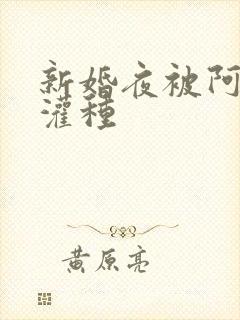 新婚夜被阿
灌種
黄原亮